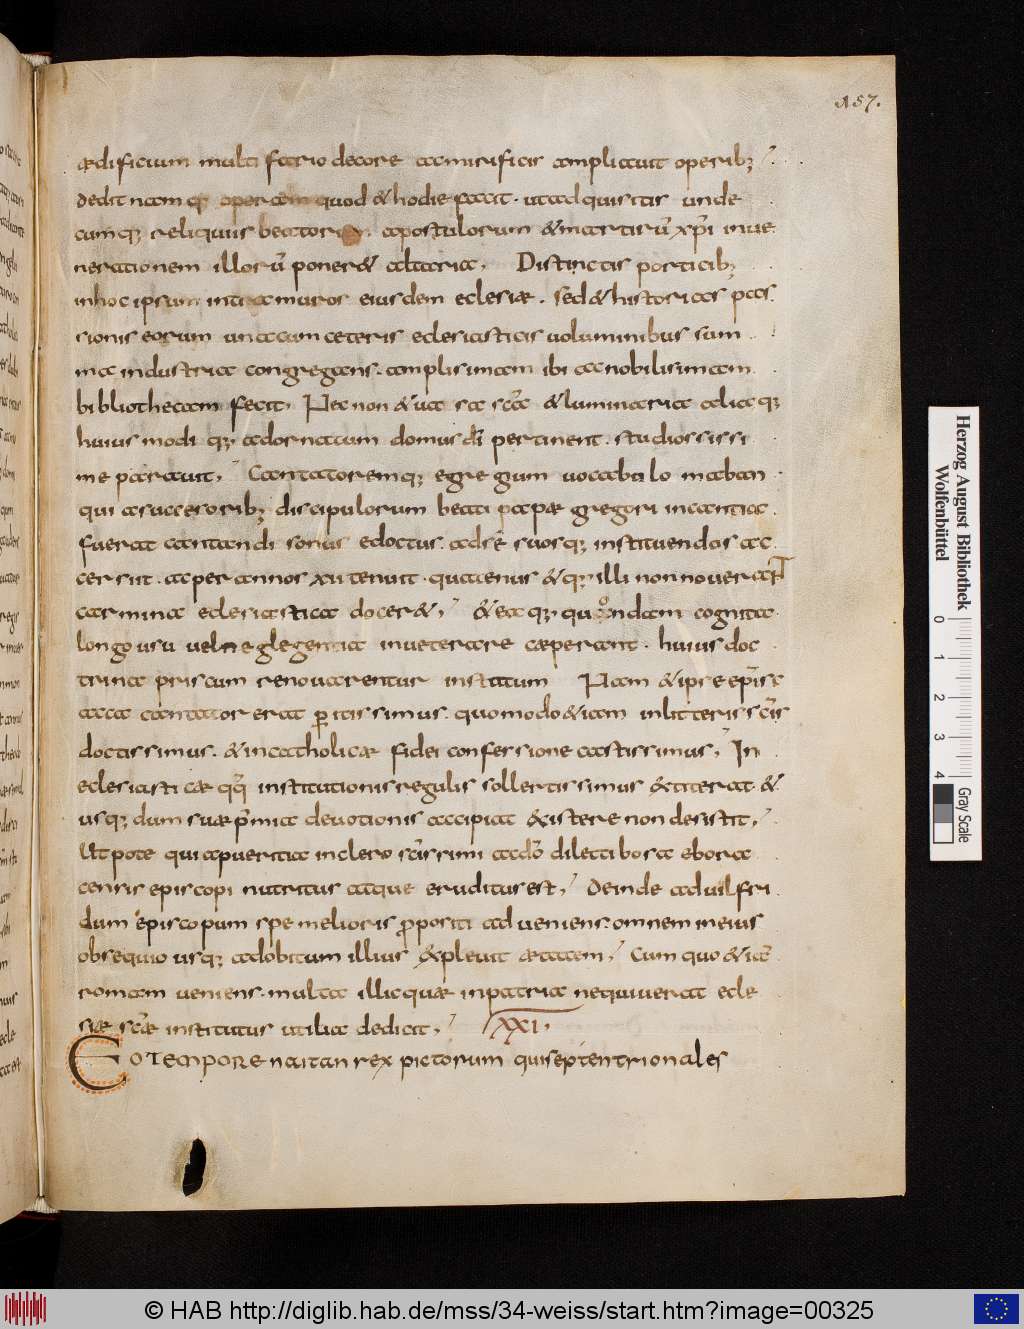 157.
ædificium multifario decore ac mirificis ampliauit operibʒ;
dedit namqʒ operam quod & hodie facit · ut adquisitis unde
cumqʒ reliquiis beatorum apostolorum & martirū xp̄i in ue
nerationem illorū poner& altaria, Distinctis porticibʒ
in hoc ipsum intra muros eiusdem eclesiæ . sed & historias pas
sionis eorum una cum ceteris eclesiasticis uoluminibus sum
ma industria congregans . amplisimam ibi ac nobilisimam
bibliothecam fecit, Nec non & uasa sc̄a & luminaria aliaqʒ
huius modi qʒ ad ornatum domus dī pertinent . studiossissi
me parauit, Cantatoremqʒ egregium uocabulo maban
qui a successoribʒ discipulorum beati papæ gregori in cantia
fuerat cantandi sonus edoctus . ad se suosqʒ instituendos ac
cersiit . ac per annos xii tenuit . quatenus & qʒ illi non nouerant
carmina eclesiastica docer&, & ea qʒ quondam cognita
longo usu uel neglegentia inueterare cæperant . huius doc
trina priscum renouarentur in statum Nam & ipse episc
aca cantator erat ꝑitissimus . quomodo & iam in litteris sc̄is
doctissimus . & in catholicæ fidei confessione castissimus, In
eclesiasticæ qq̄ institutionis regulis sollertissimus &titerat . &
usqʒ dum suæ p̄mia deuotionis accipiat &sistere non desistit,
Utpote qui a pueritia in clero sc̄issimi ac dō dilecti bosa ebora
censis episcopi nutritus atque eruditus est, Deinde ad uilfri
dum episcopum spe melioris ꝓpositi adueniens . omnem in eius
obsequio usqʒ ad obitum illius &pleuit ætatem, Cum quo & iā
romam ueniens . multa illic quæ in patria nequiuerat ecle
siæ sc̄æ institutus utilia dedicit, XXI,
EO TEMPORE naitan rex pictorum qui septentrionales
Herzog August Bibliothek
Wolfenbüttel
0 1 2 3 4
Gray Scale
© HAB http://diglib.hab.de/mss/34-weiss/start.htm?image=00325